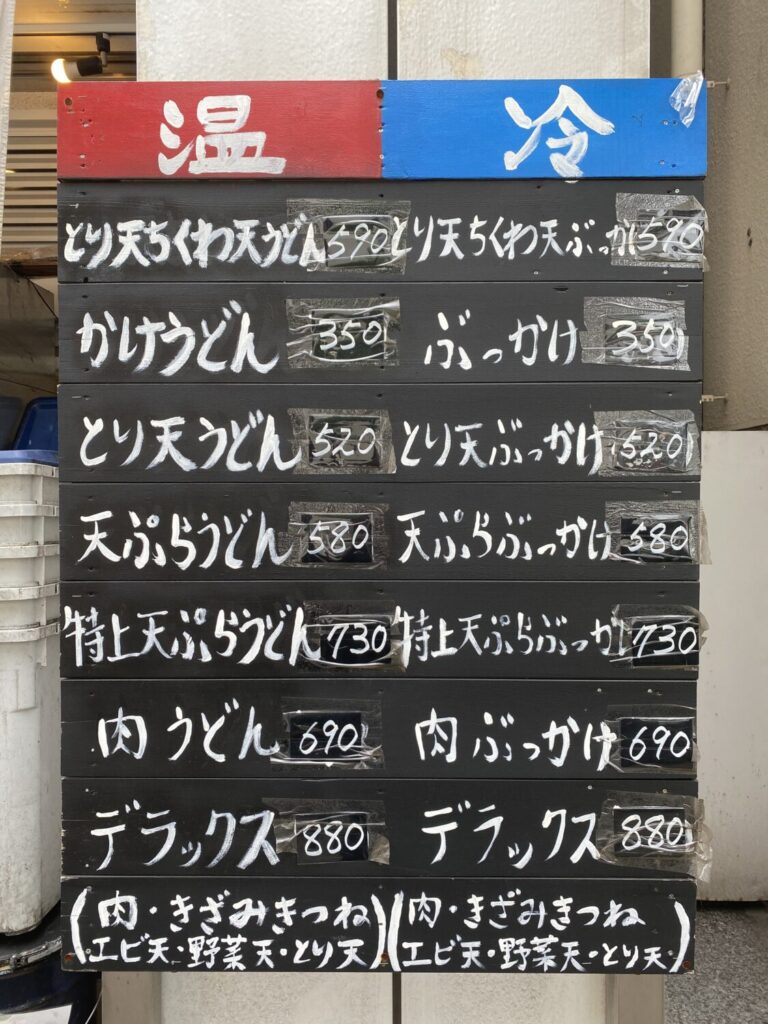 温 冷
とり天ちくわ天うどん 590 とり天ちくわ天ぶっか 590
かけうどん 350 ぶっかけ 350
とり天うどん 520 とり天ぶっかけ 520
天ぷらうどん 580 天ぷらぶっかけ 580
特上天ぷらうどん 730 特上天ぷらぶっか 730
肉うどん 690 肉ぶっかけ 690
デラックス 880 デラックス 880
(肉・きざみきつね (肉・きざみきつね
エビ天・野菜天・とり天) エビ天・野菜天・とり天)